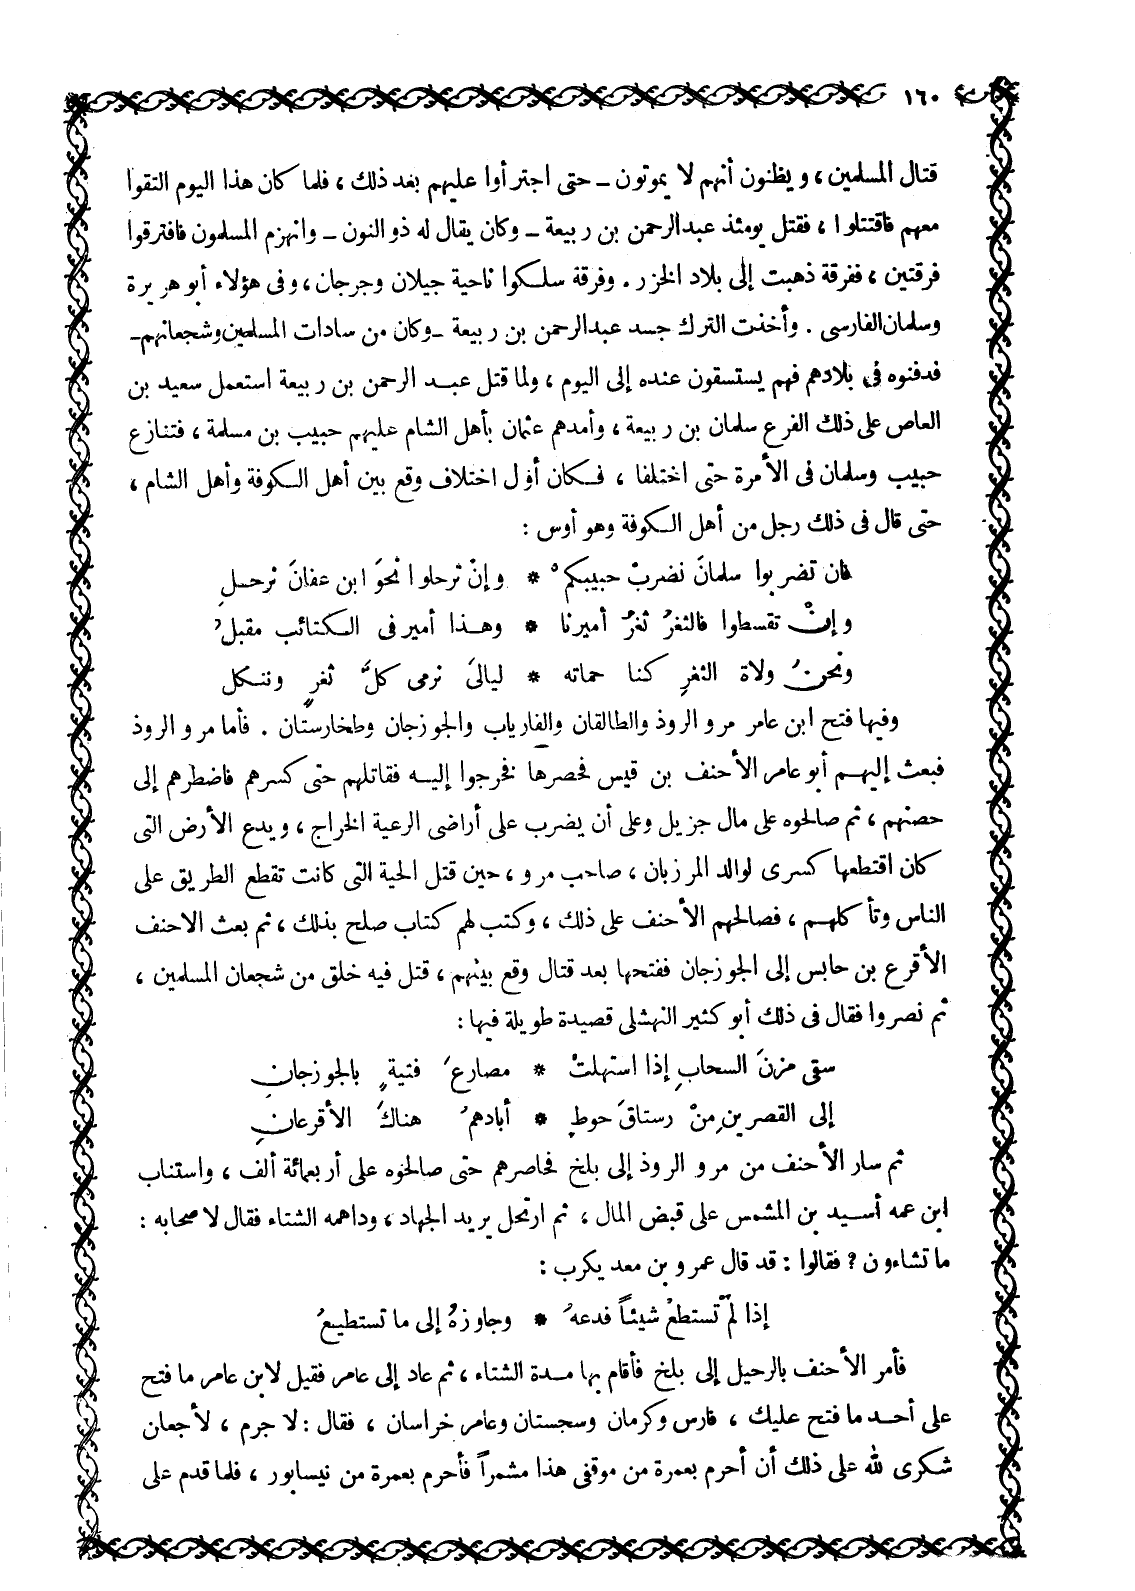 ١٦٠
قتال المسلمين ، ويظنون أنهم لا يموتون ــ حتى اجترأوا عليهم بعد ذلك ، فلما كان هذا اليوم التقوا
معهم فاقتتلوا ، فقتل يومئذ عبدالرحمن بن ربيعة ــ وكان يقال له ذو النون ــ وانهزم المسلمون فافترقوا
فرقتين ، ففرقة ذهبت إلى بلاد الخزر . وفرقة سلكوا ناحية جيلان وجرجان ، وفى هؤلاء أبو هريرة
وسلمان الفارسى . وأخذت الترك جسد عبدالرحمن بن ربيعة ــ وكان من سادات المسلمين وشجعانهم ــ
فدفنوه فى بلادهم فهم يستسقون عنده إلى اليوم ، ولما قتل عبد الرحمن بن ربيعة استعمل سعيد بن
العاص على ذلك الفرع سلمان بن ربيعة ، وأمدهم عثمان بأهل الشام عليهم حبيب بن مسلمة ، فتنازع
حبيب وسلمان فى الأمرة حتى اختلفا ، فكان أول اختلاف وقع بين أهل الكوفة وأهل الشام ،
حتى قال فى ذلك رجل من أهل الكوفة وهو أوس :
فان تضربوا سلمانَ نضربْ حبيبكمْ * وإنْ ترحلوا نحوَ ابن عفانَ نرحلِ
وإنْ تقسطوا فالثغرُ ثغرُ أميرنا * وهذا أمير فى الكتائب مقبلُ
ونحنُ ولاة الثغرِ كنا حماته * ليالىَ نرمى كلَّ ثغرٍ وننكل
وفيها فتح ابن عامر مرو الروذ والطالقان والفارياب والجوزجان وطخارستان . فأما مرو الروذ
فبعث إليهم أبو عامر الأحنف بن قيس فحصرها فخرجوا إليه فقاتلهم حتى كسرهم فاضطرهم إلى
حصنهم ، ثم صالحوه على مال جزيل وعلى أن يضرب على أراضى الرعية الخراج ، ويدع الأرض التى
كان اقتطعها كسرى لوالد المرزبان ، صاحب مرو ، حين قتل الحية التى كانت تقطع الطريق على
الناس وتأكلهم ، فصالحهم الأحنف على ذلك ، وكتب لهم كتاب صلح بذلك ، ثم بعث الاحنف
الأقرع بن حابس إلى الجوزجان ففتحها بعد قتال وقع بينهم ، قتل فيه خلق من شجعان المسلمين ،
ثم نصروا فقال فى ذلك أبو كثير النهشلى قصيدة طويلة فيها :
سقى مزنَ السحابِ إذا استهلتْ * مصارعَ فتيةٍ بالجوزجانِ
إلى القصرينِ منْ رستاقَ حوطٍ * أبادهمُ هناكَ الأقرعانِ
ثم سار الأحنف من مرو الروذ إلى بلخ فحاصرهم حتى صالحوه على أربعمائة ألف ، واستناب
ابن عمه أسيد بن المشمس على قبض المال ، ثم ارتحل يريد الجهاد ، وداهمه الشتاء فقال لاصحابه :
ما تشاءون ؟ فقالوا : قد قال عمرو بن معد يكرب :
إذا لمْ تستطعْ شيئاً فدعهُ * وجاوزهُ إلى ما تستطيعُ
فأمر الأحنف بالرحيل إلى بلخ فأقام بها مدة الشتاء ، ثم عاد إلى عامر فقيل لابن عامر ما فتح
على أحد ما فتح عليك ، فارس وكرمان وسجستان وعامر خراسان ، فقال : لا جرم ، لأجعلن
شكرى لله على ذلك أن أحرم بعمرة من موقفى هذا مشمراً فأحرم بعمرة من نيسابور ، فلما قدم على